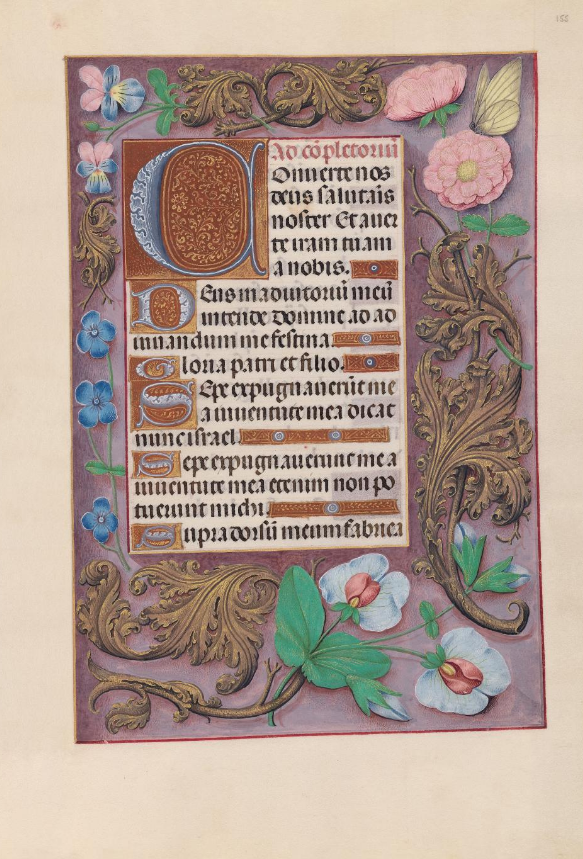 155
Ad cōpletoriū
Conuerte nos
deus salutaris
noster Et auer
te iram tuam
a nobis.
Deus in adiutoriū meū
intende Domine ad ad
iuuandum me festina
Gloria patri et filio.
Sepe expugnauerūt me
a iuuentute mea dicat
nunc israel
Sepe expugnauerunt me a
iuuentute mea etenim non po
tuerunt michi.
Supra dorsū meum fabrica